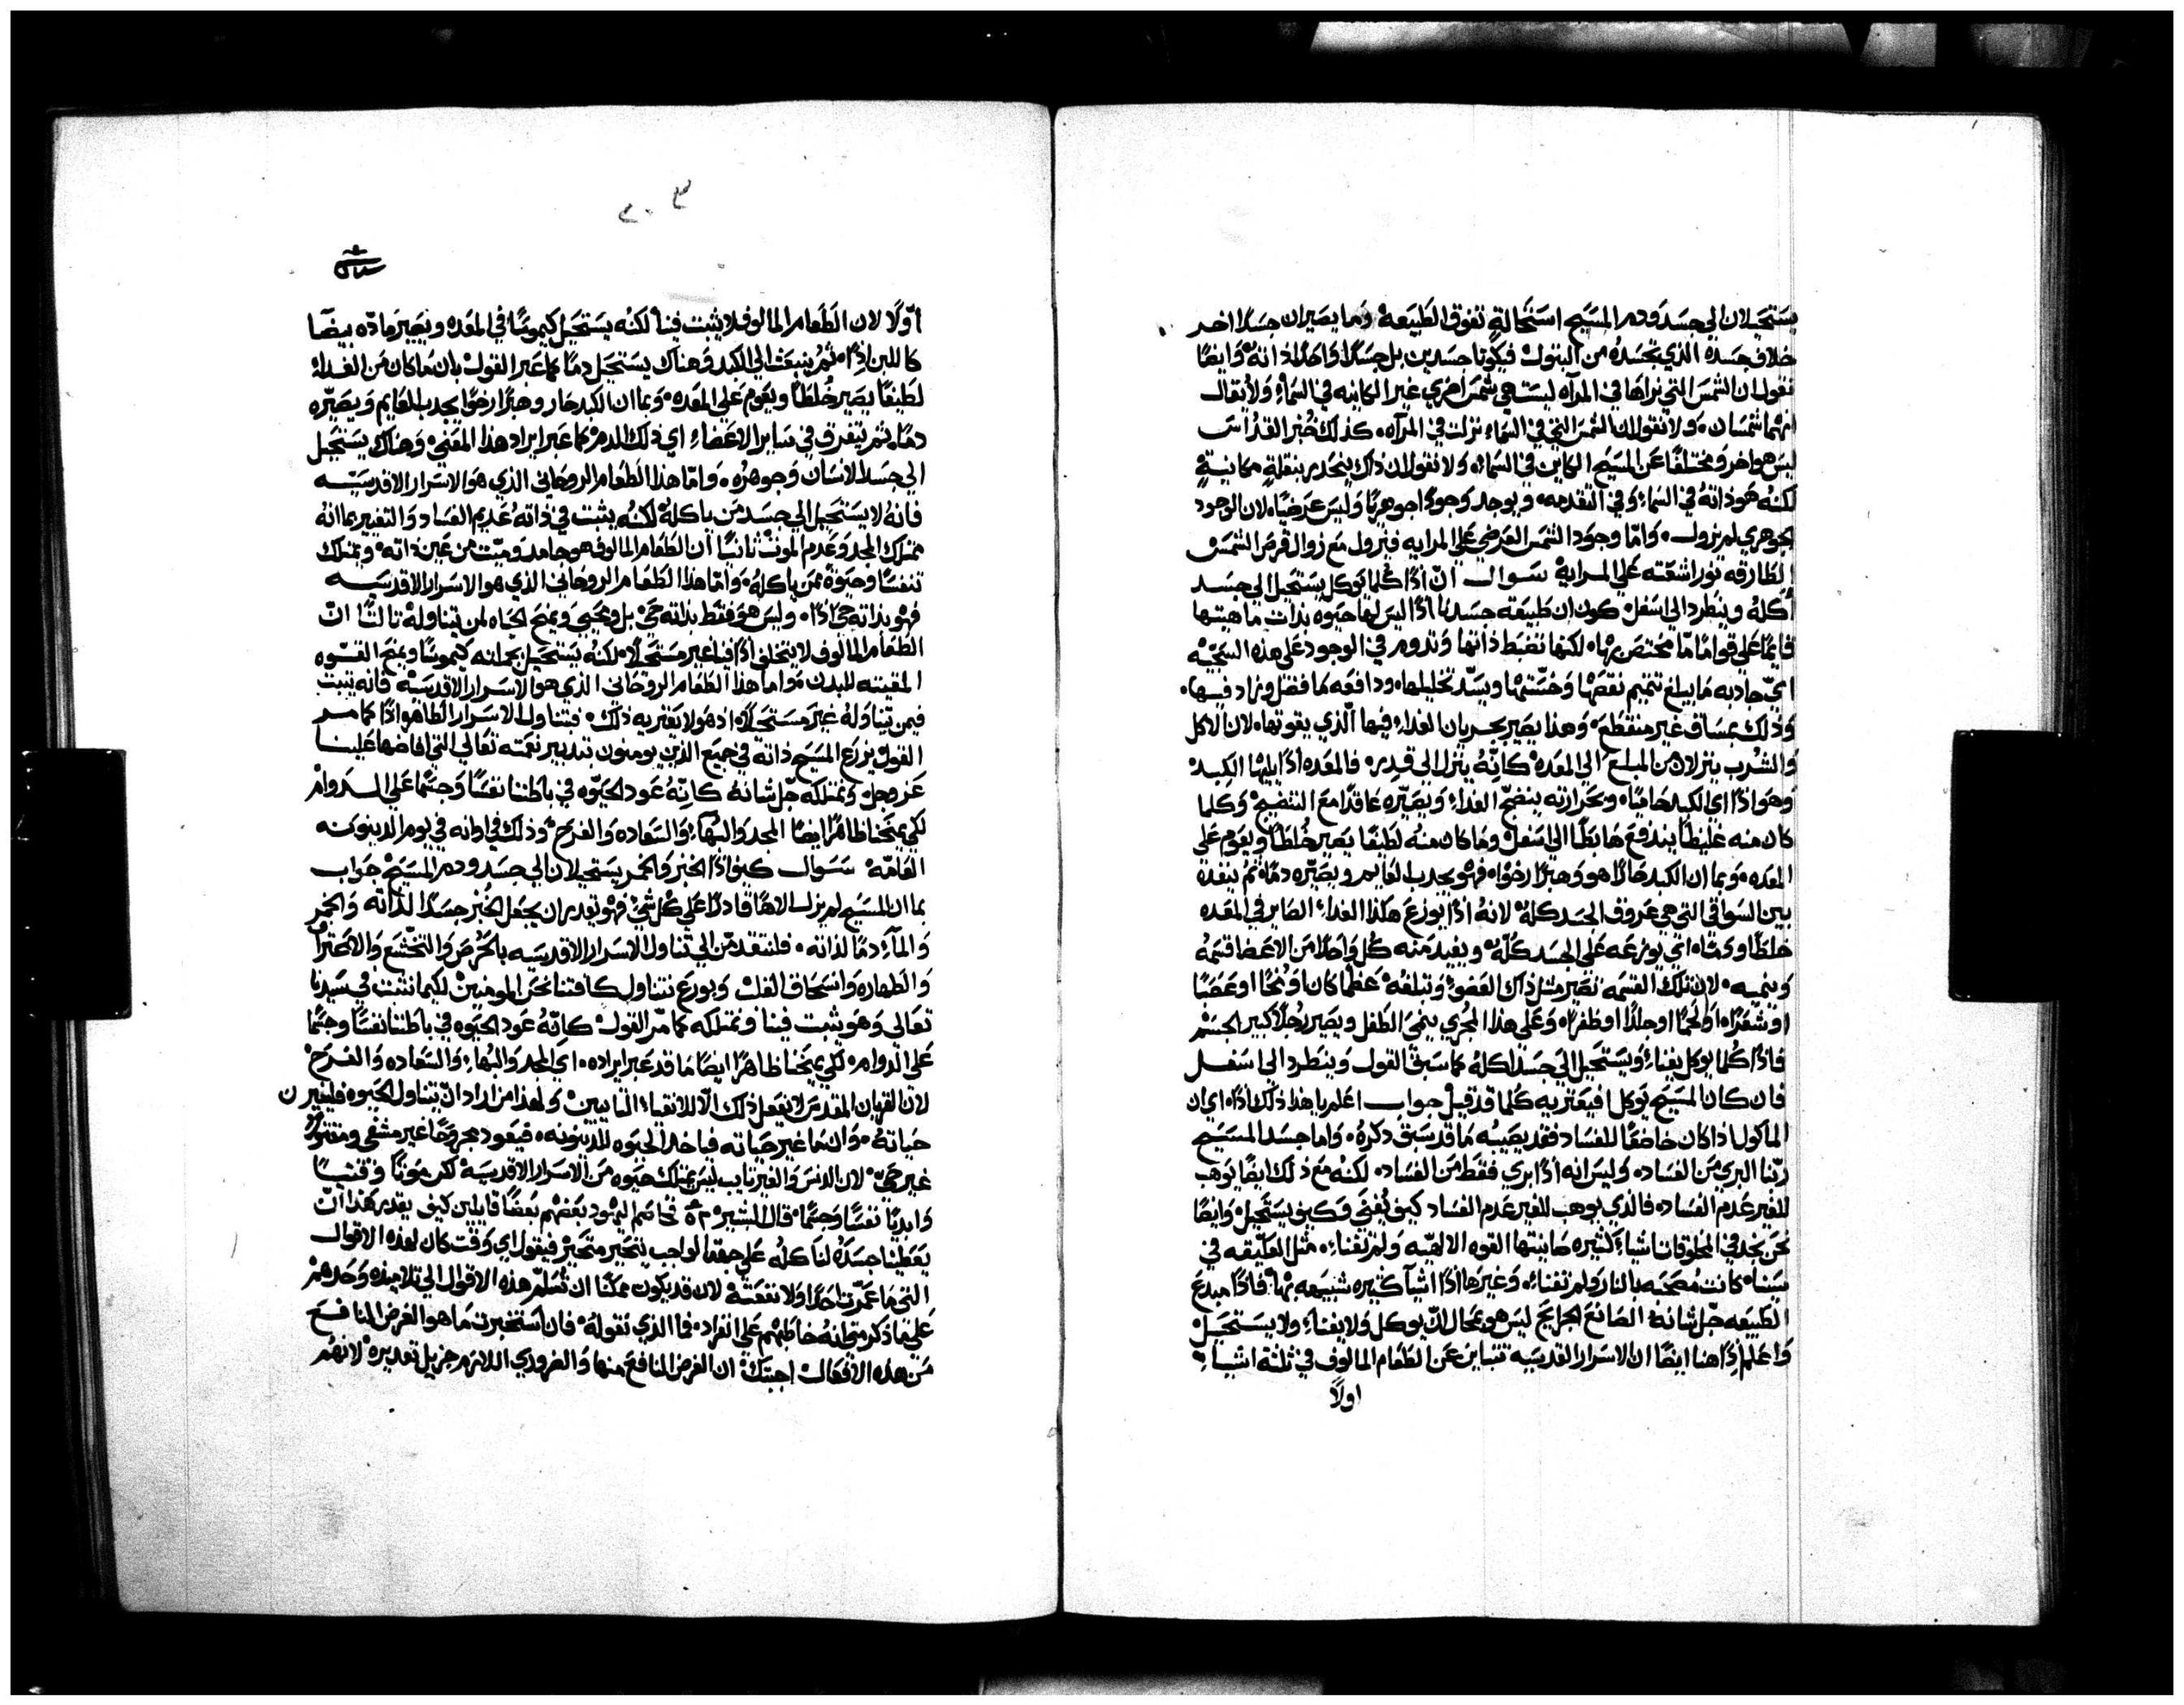 يستحيلان الي جسد ودم المسيح استحالةٍ تفوق الطبيعه وما يصيران جسدًا اخر
خلاف جسده الذي تجسده من البتول فيكونا جسدين بل جسدًا واحدًا لذاته وايضًا
نقول ان الشمس التي نراها في المرآه ليست هي شمس اخري غير الكاينه في السماءِ ولا تقال
انهما شمسان. ولا نقول ان الشمس التي في السماءِ نزلت في المرآه. كذلك خُبز القداس
ليس هو اخر ومختلفًا عن المسيح الكاين في السماءِ. ولا نقول ان ذاك ينحدر بنقلةٍ مكانيةٍ
لكنه هو ذاتهُ في السماءِ وفي التقدمه. ويوجد وجودًا جوهريًا وليس عرضيًا. لان الوجود
الجوهري لم يزول. وامّا وجود الشمس العرضي علي المرايه فيزول مع زوال قرص الشمس
الطارقه نور اشعّته علي المراية سوال انّ اذًا كلما يوكل يستحيل الي جسد
آكلهُ وينطرد الي اسفل. كون ان طبيعته جسدنا اذًا ليس لها حيوه بذات ماهيتها
قايمًا علي قوامًا مّا مختص بها. لكنها تضبط ذاتها وتدوم في الوجود علي هذه السجيّه
ايّ جاذبه ما يبلغ تتميم نقصها وخسّتها ويسدّ تخليلها. ودافعه ما فضل وزاد فيها.
وذلك بمساق غير منقطع. وهذا يصير بجريان الغداءِ فيها الّذي يقوتها. لان الاكل
والشُرب ينزلان من المبلع الي المعده كانّهُ ينزل الي قدرٍ. فالمعده اذًا يليها الكبد
وهو اذًا اي الكبد حاميًا. وبحرارته ينضجّ الغداءِ ويصيّره عاقدًا مع التنضيج وكلما
كان منه غليظًا يندفع هابطًا الي اسفل وما كان منهُ لطيفًا يصير خُلطًا ويقوم علي
المعده. وبما ان الكبد حارًا هو وهبرًا رخوًا. فهو يجدب القايم ويصيّره دمًا. ثم ينفده
بين السواقي التي هي عروق الجسد كلهُ لانهُ اذًا يوزع هكذا الغداءِ الصاير في المعده
خلطًا ودمًا. اي يوزعه علي الجسد كُلّهُ ويفيد منه كُل واحدًا من الاعضا قسمهُ
وينميه. لان تلك القسمه تصير مثل ذاك العضو وتبلغهُ عظمًا كان او مُخًا او عصبًا
او شعرًا. او لحمًا او جلدًا او ظفرًا. وعلي هذا المجري ينمي الطفل ويصير رجُلًا كبير الجسم
فاذًا كُلما يوكل يفناءِ ويستحيل الي جسد اكلهُ كما سبق القول وينطرد الي اسفل
فان كان المسيح يوكل افيعتريه كُلما قد قيل جواب اعلم يا هذا ذلك اذًا. اي ان
الماكول اذا كان خاضعًا للفساد فقد يصيبُه ما قد سبق ذكرهُ. واما جسد المسيح
ربّنا البري من الفساد. وليس انه اذًا بري فقط من الفساد. لكنهُ مع ذلك ايضًا يوهب
للغير عدم الفساد. فالذي يوهب للغير عدم الفساد كيف يُفني وكيف يستحيل. وايضًا
نحن نجد في المخلوقات اشياءِ كثيره صانتها القوه الالهيّه ولم تفناءِ. مثل العلّيقه في
سينا. كانت مُضحنه بالنار ولم تفناءِ. وغيرها اذًا اشيآ كثيره شبيهه بهاِ. فاذًا مبدع
الطبيعه جّل شانهُ الصانع الجرايح ليس هو محال انّ يوكل ولا يفناءِ ولا يستحيل
واعلم اذًا هنا ايضًا ان الاسرار القدسيه تتباين عن الطعام المالوف في ثلثة اشياءِ
اولًا
٢٠٣
اوّلًا لان الطعام المالوف لا يثبت فينا لكنُه يستحيل كيموسًا في المعده ويصير مادّه بيضًا
كاللبن اذًا. ثم ينبعث الي الكبد وهناك يستحيل دمًا كما عبر القول بان ما كان من الغداءِ
لطيفًا يصير خُلطًا ويقوم علي المعده. وبما ان الكبد حار وهبرًا رخوًا يجدب القايم ويصيّره
دمًا. ثم يتفرق في ساير الاعضاءِ اي ذلك الدم كما عبر ايراد هذا المعني. وهناك يستحيل
الي جسد الانسان وجوهره. وامّا هذا الطعام الروحاني الذي هو الاسرار الاقدسيّه
فانهُ لا يستحيل الي جسد من ياكلهُ لكنُه يثبت في ذاته عديم الفساد والتغيير بما انهُ
ممتلك المجد وعدم الموت ثانيًا ان الطعام المالوف هو جامد وميّت من عين ذاته. ويمتلك
تنفسًا وحيوة ممن ياكلهُ. وامّا هذا الطعام الروحاني الذي هو الاسرار الاقدسيه
فهو بذاته حيّ اذًا. وليس هو فقط بذاته حيّ بل ومحيي ويمنح الحياه لمن يتناوله ثالثًا انّ
الطعام المالوف لا يتخلف اذًا فينا غير مستحيلًا. لكنُه يستحيل بجملته كيموسًا ويمنح القوه
المقيته للبدن. واما هذا الطعام الروحاني الذي هو الاسرار الاقدسيّه فانه يثبت
فيمن يتناوله غير مستحيلًا. اذ هو لا يعتريه ذلك. فبتناول الاسرار الطاهره اذًا كما مر
القول يزرع المسيح ذاته في جميع الذين يومنون بتدبير نعمته تعالي التي افاضها علينا
عز وجل. ونمتلكه جّل شانهُ كانّهُ عود الحيوّه في باطننا نفسًا وجسمًا علي الدوام
لكي يمنحنا ظاهرًا ايضًا المجد والبهآءِ والسعاده والفرح. وذلك في اوانه في يوم الدينونه
العامّه سوال كيف اذًا الخبز والخمر يستحيلان الي جسد ودم المسيح جواب
بما ان المسيح لم يزل الاهًا قادرًا علي كُل شيءٍ فهو يقدر ان يجعل الخُبز جسدًا لذاته والخمر
والمآءِ دمًا لذاته. فلنتقدمّن الي تناول الاسرار الاقدسيه بالحرص والتخّشع والاحترام
والطهاره وانسحاق القلب وبورع نتناول كافتنا نحن المومنين لكيما نثبت في سيدنا
تعالي وهو يثبت فينا ونمتلكه كما مّر القول. كانّهُ عود الحيوه في باطننا نفسًا وجسمًا
علي الدوام. لكي يمنحنا ظاهرًا ايضًا ما قد عبر ايراده. اي المجد والبهاءِ والسعاده والفرح
لان القربان المقدس لا يفعل ذلك الّا للانقياءِ التايبين. ولهذا من اراد انّ يتناول الحيوه فليغيرن
حياتهُ. وان ما غير حياته فياخد الحيوه للدينونه. فيعود مجروحًا غير مشفي ومقتولًا
غير حيّ. لان الدنس والغير تايب ليس يمتلك حيوه من الاسرار الاقدسيه لكن موتًا
وابديًا نفسًا وجسمًا. قال البشير فخاصم اليهود بعضهم بعضًا قايلين كيف يقدر هذا انّ
يعطينا جسدُه لناكلُه علي جهة الواجب يتحير متحير فيقول اي وقت كان لهذه الاقوال
التي ما عمّرت احدًا ولا نفعتهُ لان قد يكون ممكنًا ان تُسلم هذه الاقوال الي تلاميذه وحدهم
علي ما ذكر متي انهُ خاطبهم علي انفراد. فما الذي نقولهُ فان استخبرت ما هو الغرض النافع
من هذه الافعال اجبتك ان الغرض النافع منها والضروري اللازم جزيل تقديرهُ لانهُم